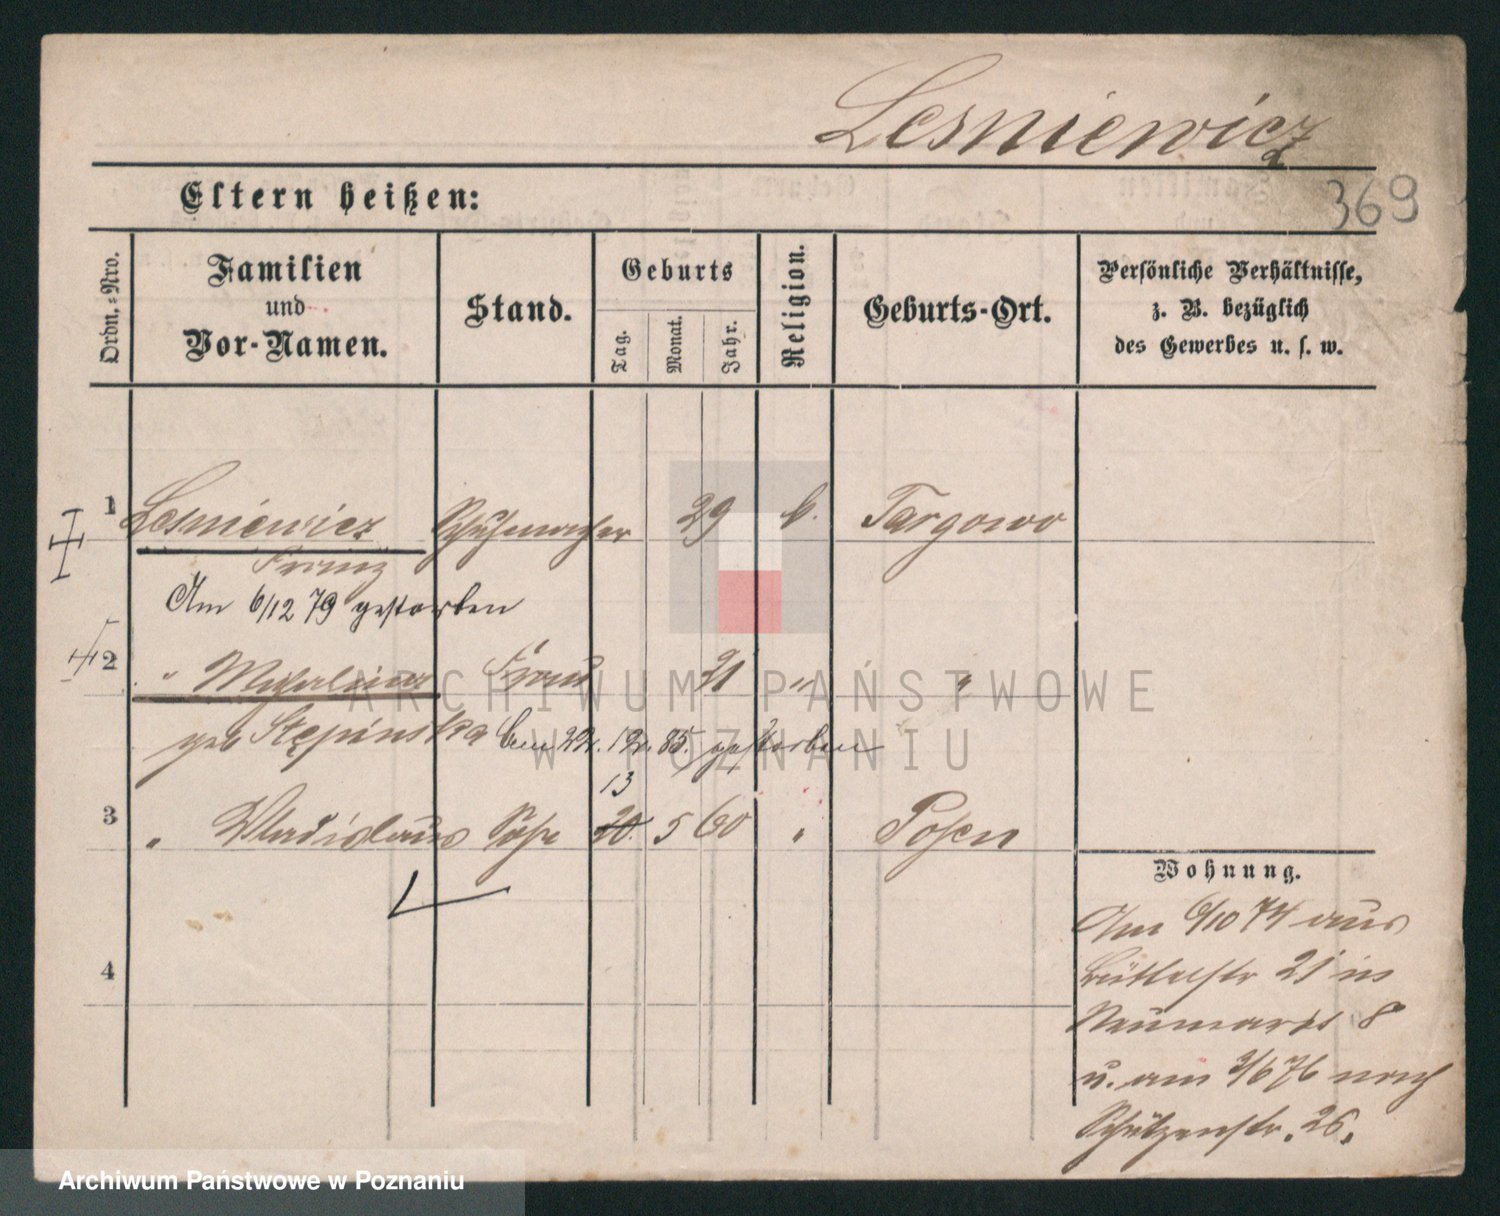 Lesniewicz
369
Eltern heißen:
Ordn.=Nro.
Familien
und
Vor-Namen.
Stand.
Geburts
Tag.
Monat.
Jahr.
Religion.
Geburts-Ort.
Persönliche Verhältnisse,
z. B. bezüglich
des Gewerbes u. s. w.
1 Lesniewicz Schuhmacher 29 k. Targowo
Franz
Am 6/12 79 gestorben
2 " Frau 21 " "
geb Stępinska 22. 12. 85. gestorben
13
3 " Wladislaus Sohn 20. 5 60 " Posen
4
Wohnung.
Am 6/10 74 aus
21 in
Neumarkt 8
u. am 3/6 76 nach
Schützenstr. 26.
ARCHIWUM PAŃSTWOWE
W POZNANIU
Archiwum Państwowe w Poznaniu